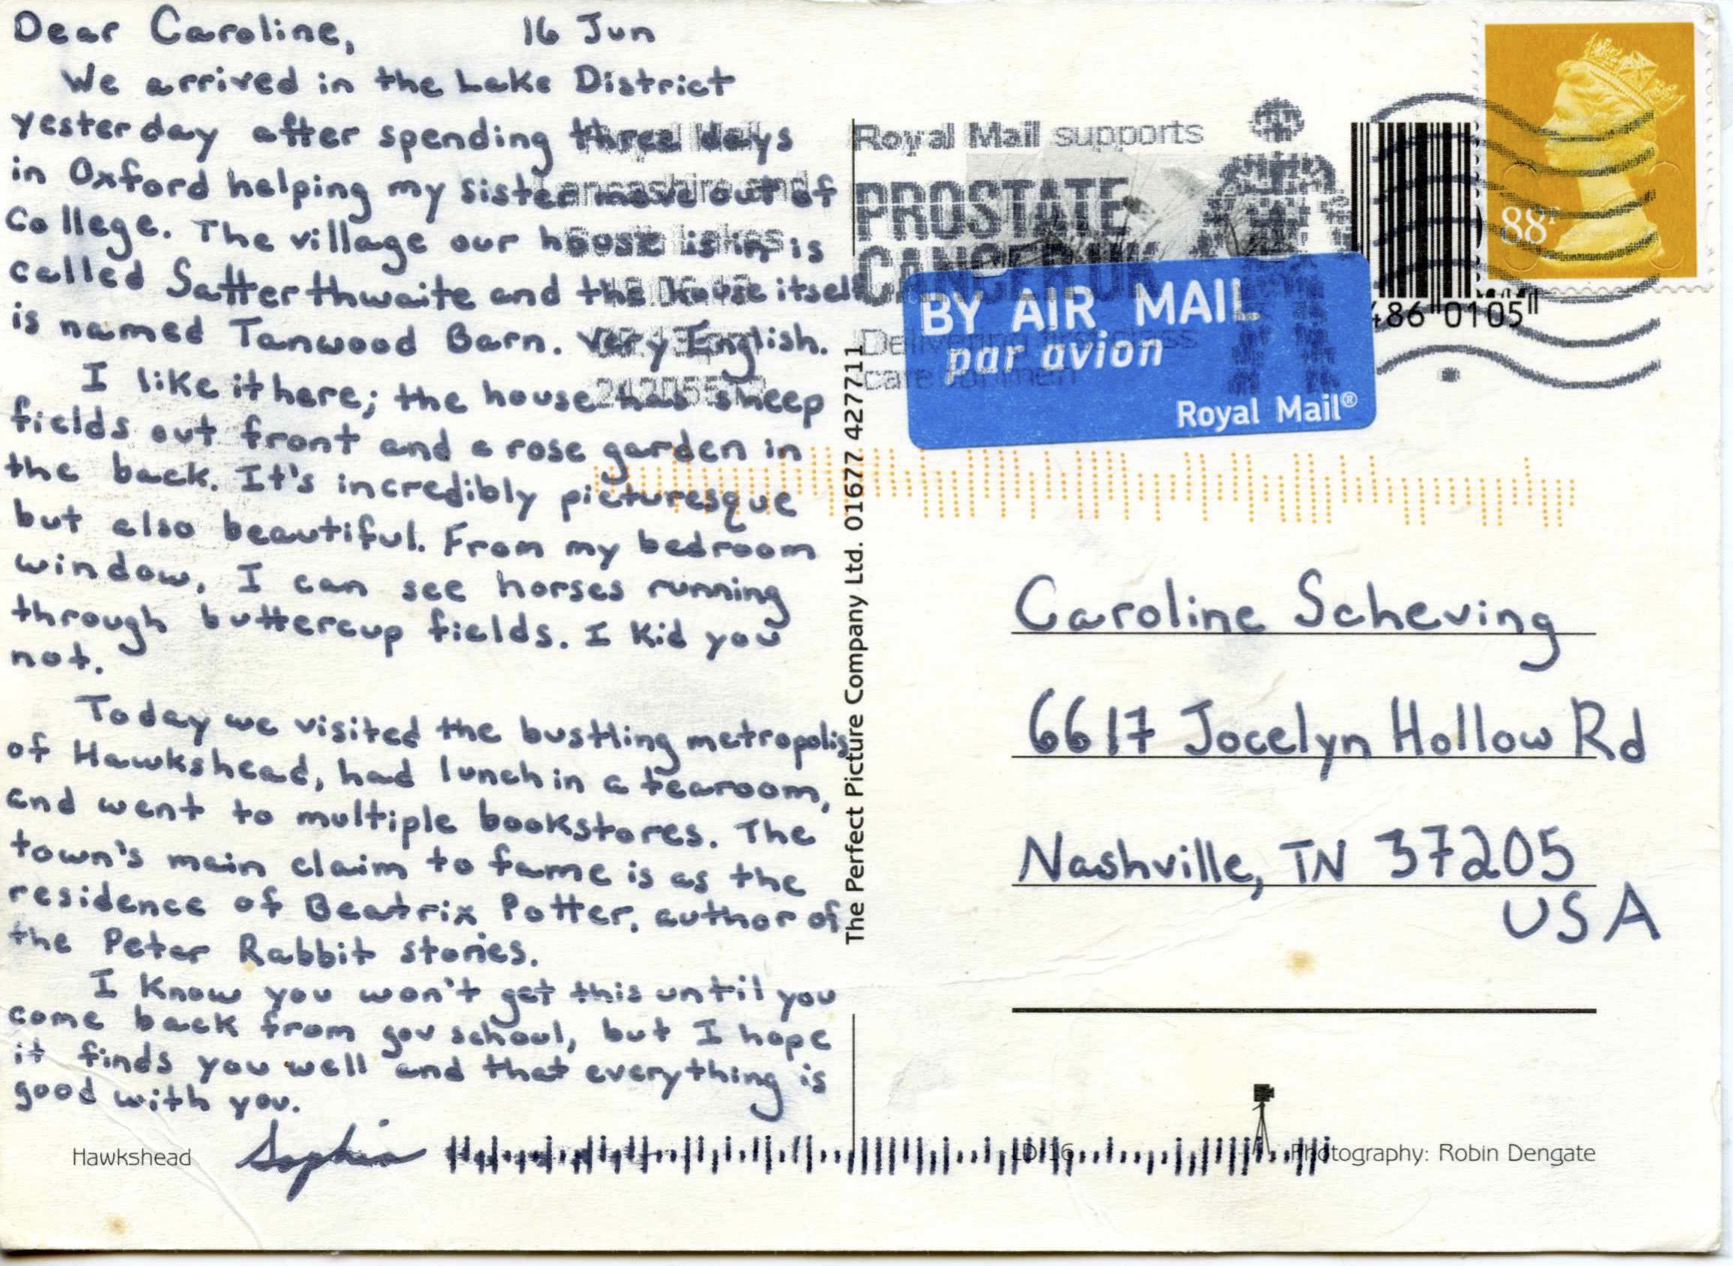 Dear Caroline, 16 Jun
We arrived in the Lake District
yesterday after spending three days
in Oxford helping my sister move out of
college. The village our house is in is
called Satterthwaite and the house itself
is named Tanwood Barn. Very English.
I like it here; the house has sheep
fields out front and a rose garden in
the back. It's incredibly picturesque
but also beautiful. From my bedroom
window, I can see horses running
through buttercup fields. I kid you
not.
Today we visited the bustling metropolis
of Hawkshead, had lunch in a tearoom,
and went to multiple bookstores. The
town's main claim to fame is as the
residence of Beatrix Potter, author of
the Peter Rabbit stories.
I know you won't get this until you
come back from gov school, but I hope
it finds you well and that everything is
good with you.
Sophia
Hawkshead
The Perfect Picture Company Ltd. 01677 427711
Royal Mail
Lancashire and
Lakes
Royal Mail supports
PROSTATE
CANCER UK
Delivering first class
care for men
BY AIR MAIL
par avion
Royal Mail®
486 0105
88p
Caroline Scheving
6617 Jocelyn Hollow Rd
Nashville, TN 37205
USA
LD 16
Photography: Robin Dengate